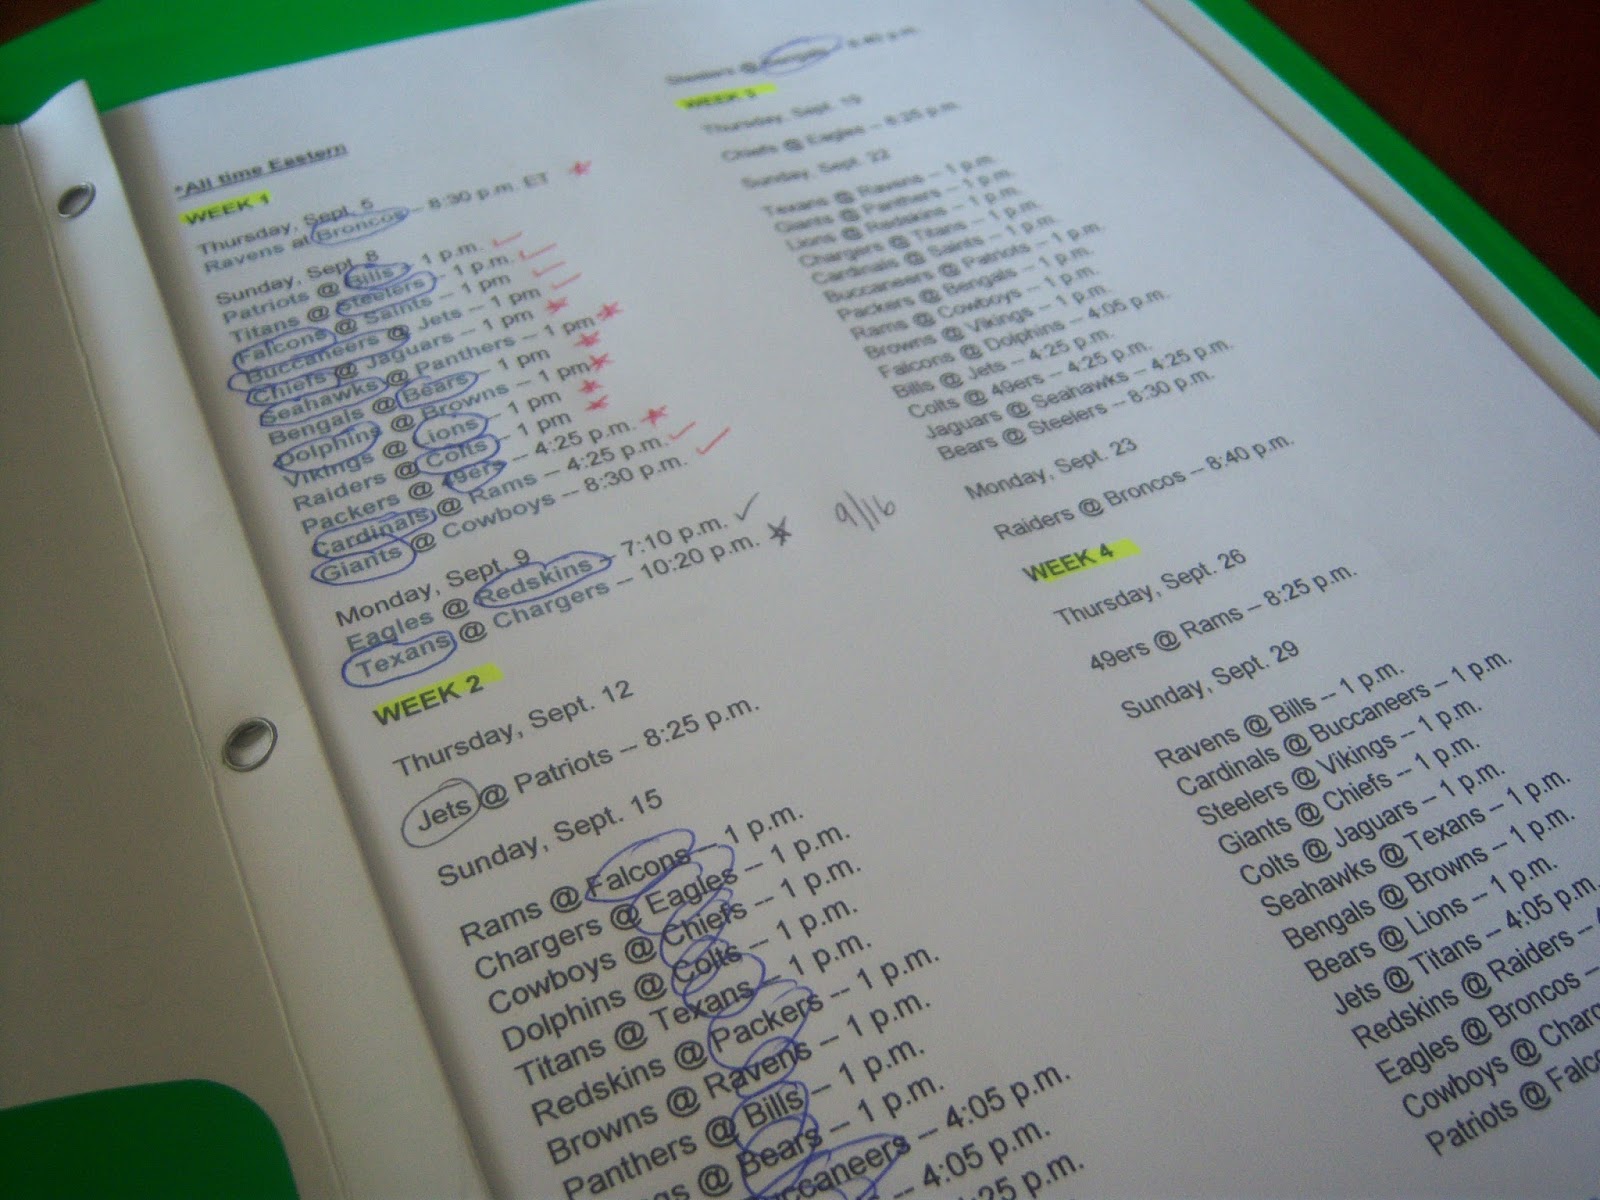 *All time Eastern
WEEK 1
Thursday, Sept. 5
Ravens at Broncos -- 8:30 p.m. ET
Sunday, Sept. 8
Patriots @ Bills - 1 p.m.
Titans @ Steelers - 1 p.m.
Falcons @ Saints -- 1 pm
Buccaneers @ Jets -- 1 pm
Chiefs @ Jaguars -- 1 pm
Seahawks @ Panthers -- 1 pm
Bengals @ Bears - 1 pm
Dolphins @ Browns -- 1 pm
Vikings @ Lions - 1 pm
Raiders @ Colts - 1 pm
Packers @ 49ers - 4:25 p.m.
Cardinals @ Rams -- 4:25 p.m.
Giants @ Cowboys -- 8:30 p.m.
Monday, Sept. 9
Eagles @ Redskins - 7:10 p.m.
Texans @ Chargers -- 10:20 p.m.
9/16
WEEK 2
Thursday, Sept. 12
Jets @ Patriots -- 8:25 p.m.
Sunday, Sept. 15
Rams @ Falcons -- 1 p.m.
Chargers @ Eagles -- 1 p.m.
Cowboys @ Chiefs -- 1 p.m.
Dolphins @ Colts -- 1 p.m.
Titans @ Texans -- 1 p.m.
Redskins @ Packers -- 1 p.m.
Browns @ Ravens -- 1 p.m.
Panthers @ Bills -- 1 p.m.
gs @ Bears -- 1 p.m.
ccaneers -- 4:05 p.m.
-- 4:05 p.m.
25 p.m.
Steelers @ Bengals
WEEK 3
Thursday, Sept. 19
Chiefs @ Eagles -- 8:25 p.m.
Sunday, Sept. 22
Texans @ Ravens -- 1 p.m.
Giants @ Panthers -- 1 p.m.
Lions @ Redskins -- 1 p.m.
Chargers @ Titans -- 1 p.m.
Cardinals @ Saints -- 1 p.m.
Buccaneers @ Patriots -- 1 p.m.
Packers @ Bengals -- 1 p.m.
Rams @ Cowboys -- 1 p.m.
Browns @ Vikings -- 1 p.m.
Falcons @ Dolphins -- 4:05 p.m.
Bills @ Jets -- 4:25 p.m.
Colts @ 49ers -- 4:25 p.m.
Jaguars @ Seahawks -- 4:25 p.m.
Bears @ Steelers -- 8:30 p.m.
Monday, Sept. 23
Raiders @ Broncos -- 8:40 p.m.
WEEK 4
Thursday, Sept. 26
49ers @ Rams -- 8:25 p.m.
Sunday, Sept. 29
Ravens @ Bills -- 1 p.m.
Cardinals @ Buccaneers -- 1 p.m.
Steelers @ Vikings -- 1 p.m.
Giants @ Chiefs -- 1 p.m.
Colts @ Jaguars -- 1 p.m.
Seahawks @ Texans -- 1 p.m.
Bengals @ Browns -- 1 p.m.
Bears @ Lions -- 1 p.m.
Jets @ Titans -- 4:05 p.m.
Redskins @ Raiders --
Eagles @ Broncos --
Cowboys @ Charg
Patriots @ Falc